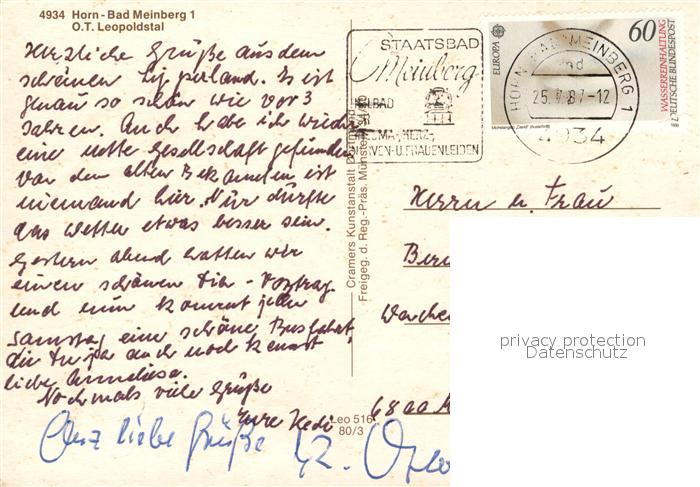 4934 Horn-Bad Meinberg 1
O.T. Leopoldstal
Herzliche Grüße aus dem
schönen Lipperland. Es ist
genau so schön wie vor 3
Jahren. Auch habe ich wieder
eine nette Gesellschaft gefunden
von den alten Bekannten ist
niemand hier. Nur dürfte
das Wetter etwas besser sein.
Gestern abend hatten wir
einen schönen Dia-Vortrag
und nun kommt jeden
Samstag eine schöne Busfahrt,
die Du ja auch noch kennst
liebe Anneliese.
Nochmals viele Grüße
Eure Hedi
Ganz liebe Grüße
Cramers Kunstanstalt Dortmund
Freigeg. d. Reg.-Präs. Münster
Leo 516
80/3
STAATSBAD
Meinberg
HEILBAD
RHEUMA, HERZ-,
NERVEN-U.FRAUENLEIDEN
EUROPA
60
WASSERREINHALTUNG
DEUTSCHE BUNDESPOST
HORN-BAD MEINBERG 1
25. 87-12
4934
Herrn u. Frau
6800
privacy protection
Datenschutz